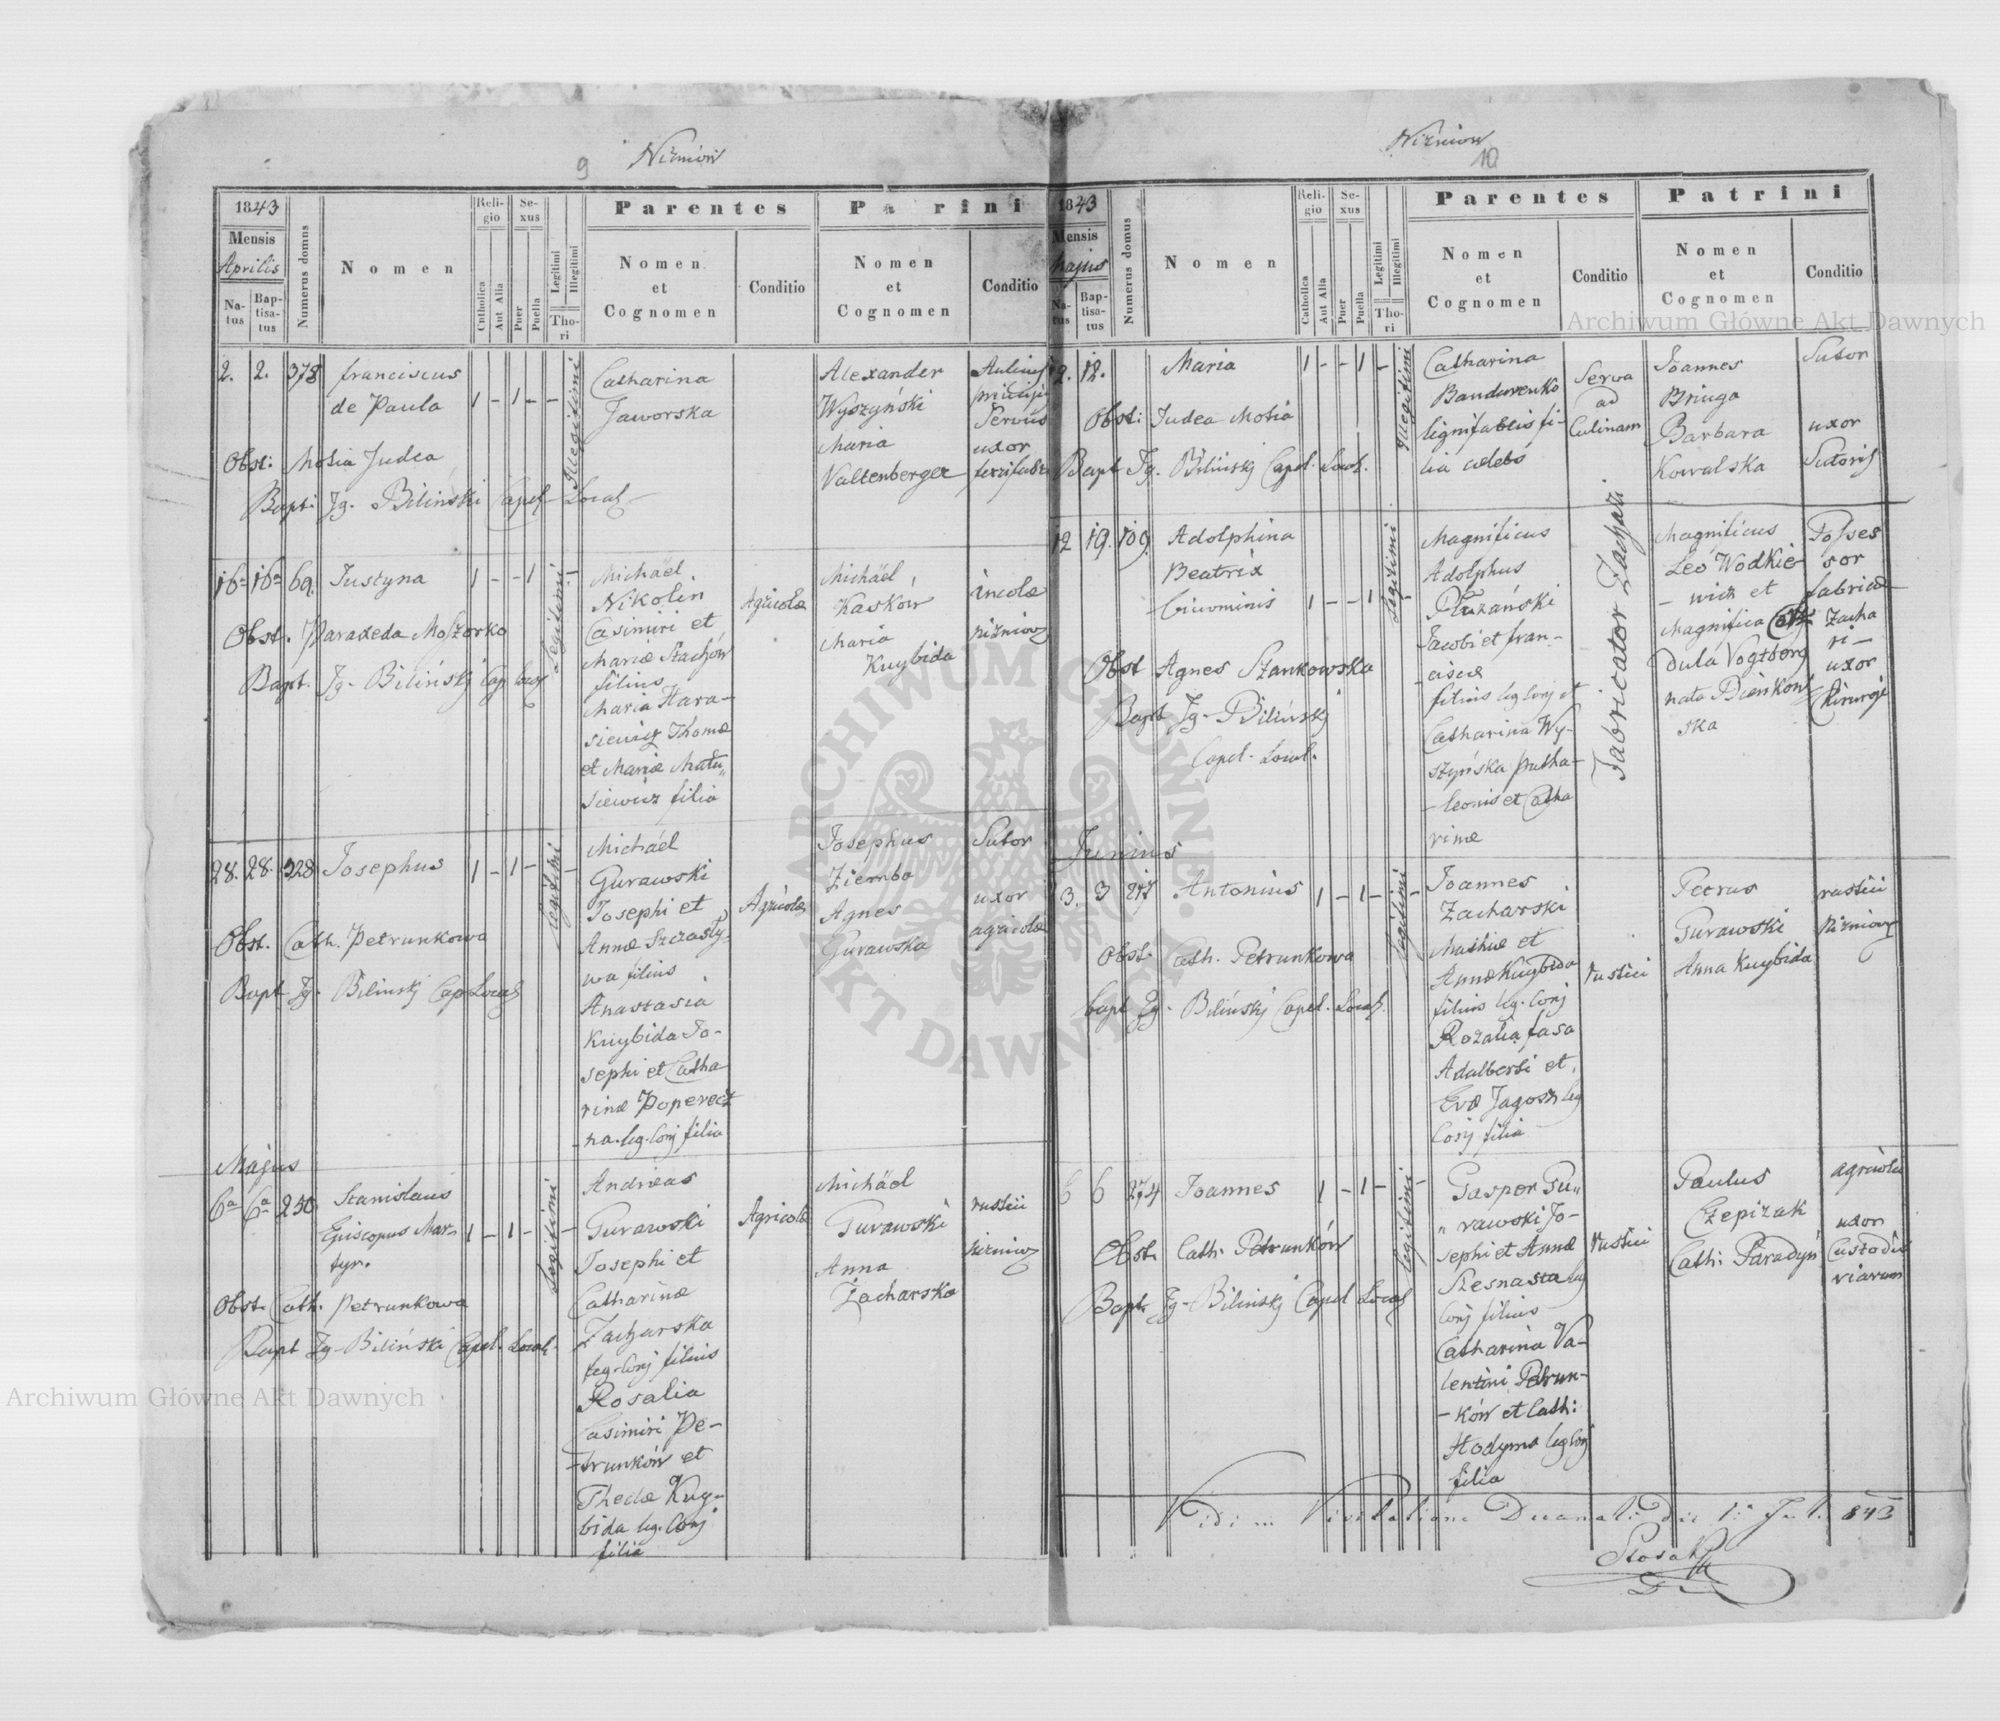 9 Niżniów
1843
Mensis
Aprilis
Na-
tus
Bap-
tisa-
tus
Numerus domus
Nomen
Reli-
gio
Catholica
Aut Alia
Se-
xus
Puer
Puella
Legitimi
Illegitimi
Tho-
ri
Parentes
Nomen
et
Cognomen
Conditio
Patrini
Nomen
et
Cognomen
Conditio
2. 2. 378 franciscus
de Paula
1 - 1 - -
Illegitimi
Obst: Mosia Judea
Bapt: Ig. Biliński Capel Local
Catharina
Jaworska
Alexander
Wyszyński
Maria
Valtenberger
Servus
uxor
16a 16a 69. Justyna
1 - - 1
Legitimi
Obst. Paraxeda Moszorko
Bapt. Ig. Bilińskj Cap Local
Michäel
Nikolin
Casimiri et
Mariæ Stachów
filius
Maria Hara-
siewicz Thomæ
et Mariæ Matu„
siewicz filia
Agricolæ
Michäel
Kasków
Maria
Kuybida
incolæ
28. 28. 328 Josephus
1 - 1 - -
legitimi
Obst. Cath. Petrunkowa
Bapt Ig. Bilinskj Cap Local
Michäel
Gurawski
Josephi et
Annæ Szczasty-
wa filius
Anastasia
Kuybida Jo-
sephi et Catha
rinæ Poperecz
na. leg. Conj filia
Agricolæ
Josephus
Ziemba
Agnes
Gurawska
Sutor
uxor
agricolæ
Majus
6a 6a 250 Stanislaus
Episcopus Mar-
tyr.
1 - 1 - -
legitimi
Obst. Cath. Petrunkowa
Bapt Ig. Biliński Capel. Local.
Andreas
Gurawski
Josephi et
Catharinæ
Zacharska
leg. Conj filius
Rosalia
Casimiri Pe-
-trunków et
Theclæ Kuy-
bida leg. Conj
filia
Agricolæ
Michäel
Gurawski
Anna
Zacharska
rustici
Niżniow
10
1843
Mensis
Majus
Na-
tus
Bap-
tisa-
tus
Numerus domus
Nomen
Reli-
gio
Catholica
Aut Alia
Se-
xus
Puer
Puella
Legitimi
Illegitimi
Tho-
ri
Parentes
Nomen
et
Cognomen
Conditio
Patrini
Nomen
et
Cognomen
Conditio
12. Maria
1 - - 1 -
Illegitimi
Obst: Judea Mosia
Bapt Ig. Bilinskj Capel. Local.
Catharina
Bandurenko
lignifabris fi-
lia celebs
Serva
ad
Culinam
Joannes
Briuga
Barbara
Kowalska
Sutor
uxor
Sutoris
12 19. 109. Adolphina
Beatrix
1 - - 1 -
Legitimi
Obst Agnes Szankowska
Bapt Ig. Bilinskj
Capel. Local.
Magnificus
Adolphus
Płużański
Jacobi et fran-
ciscæ
filius leg Conj et
Catharina Wy-
szyńska
-leonis et Catha
rinæ
Fabricator
Magnificus
Leo Wodkie-
-wicz et
Magnifica
Vogtberg
nata Bieńkow
ska
Posses
sor
fabricæ
Zacha
ri-
uxor
Chirurgi
Junius
3. 3 217 Antonius
1 - 1 - -
legitimi
Obst Cath. Petrunkowa
Bapt Ig. Bilińskj Capel. Local.
Joannes
Zacharski
Mathiæ et
Annæ Kuybida
filius leg. Conj
Rozalia fasa
Adalberti et
Evæ Jagosz leg
Conj filia
rustici
Petrus
Gurawski
Anna Kuybida
rustici
6 6 274 Joannes
1 - 1 - -
legitimi
Obst. Cath. Petrunków
Bapt. Ig. Bilińskj Capel Local
Gasper Gu„
„rawski Jo-
sephi et Annæ
Szesnasta leg
Conj filius
Catharina Va-
lentini Petrun-
-ków et Cath:
Hodyma leg Conj
filia
rustici
Paulus
Czepizak
Cath: Paradyń
agricola
uxor
Custodis
viarum
Vidi in Visitatione Decanali die 1 Juli 843
Archiwum Główne Akt Dawnych
Archiwum Główne Akt Dawnych
ARCHIWUM GŁÓWNE AKT DAWNYCH